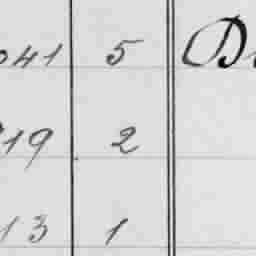 041 5
19 2
13 1